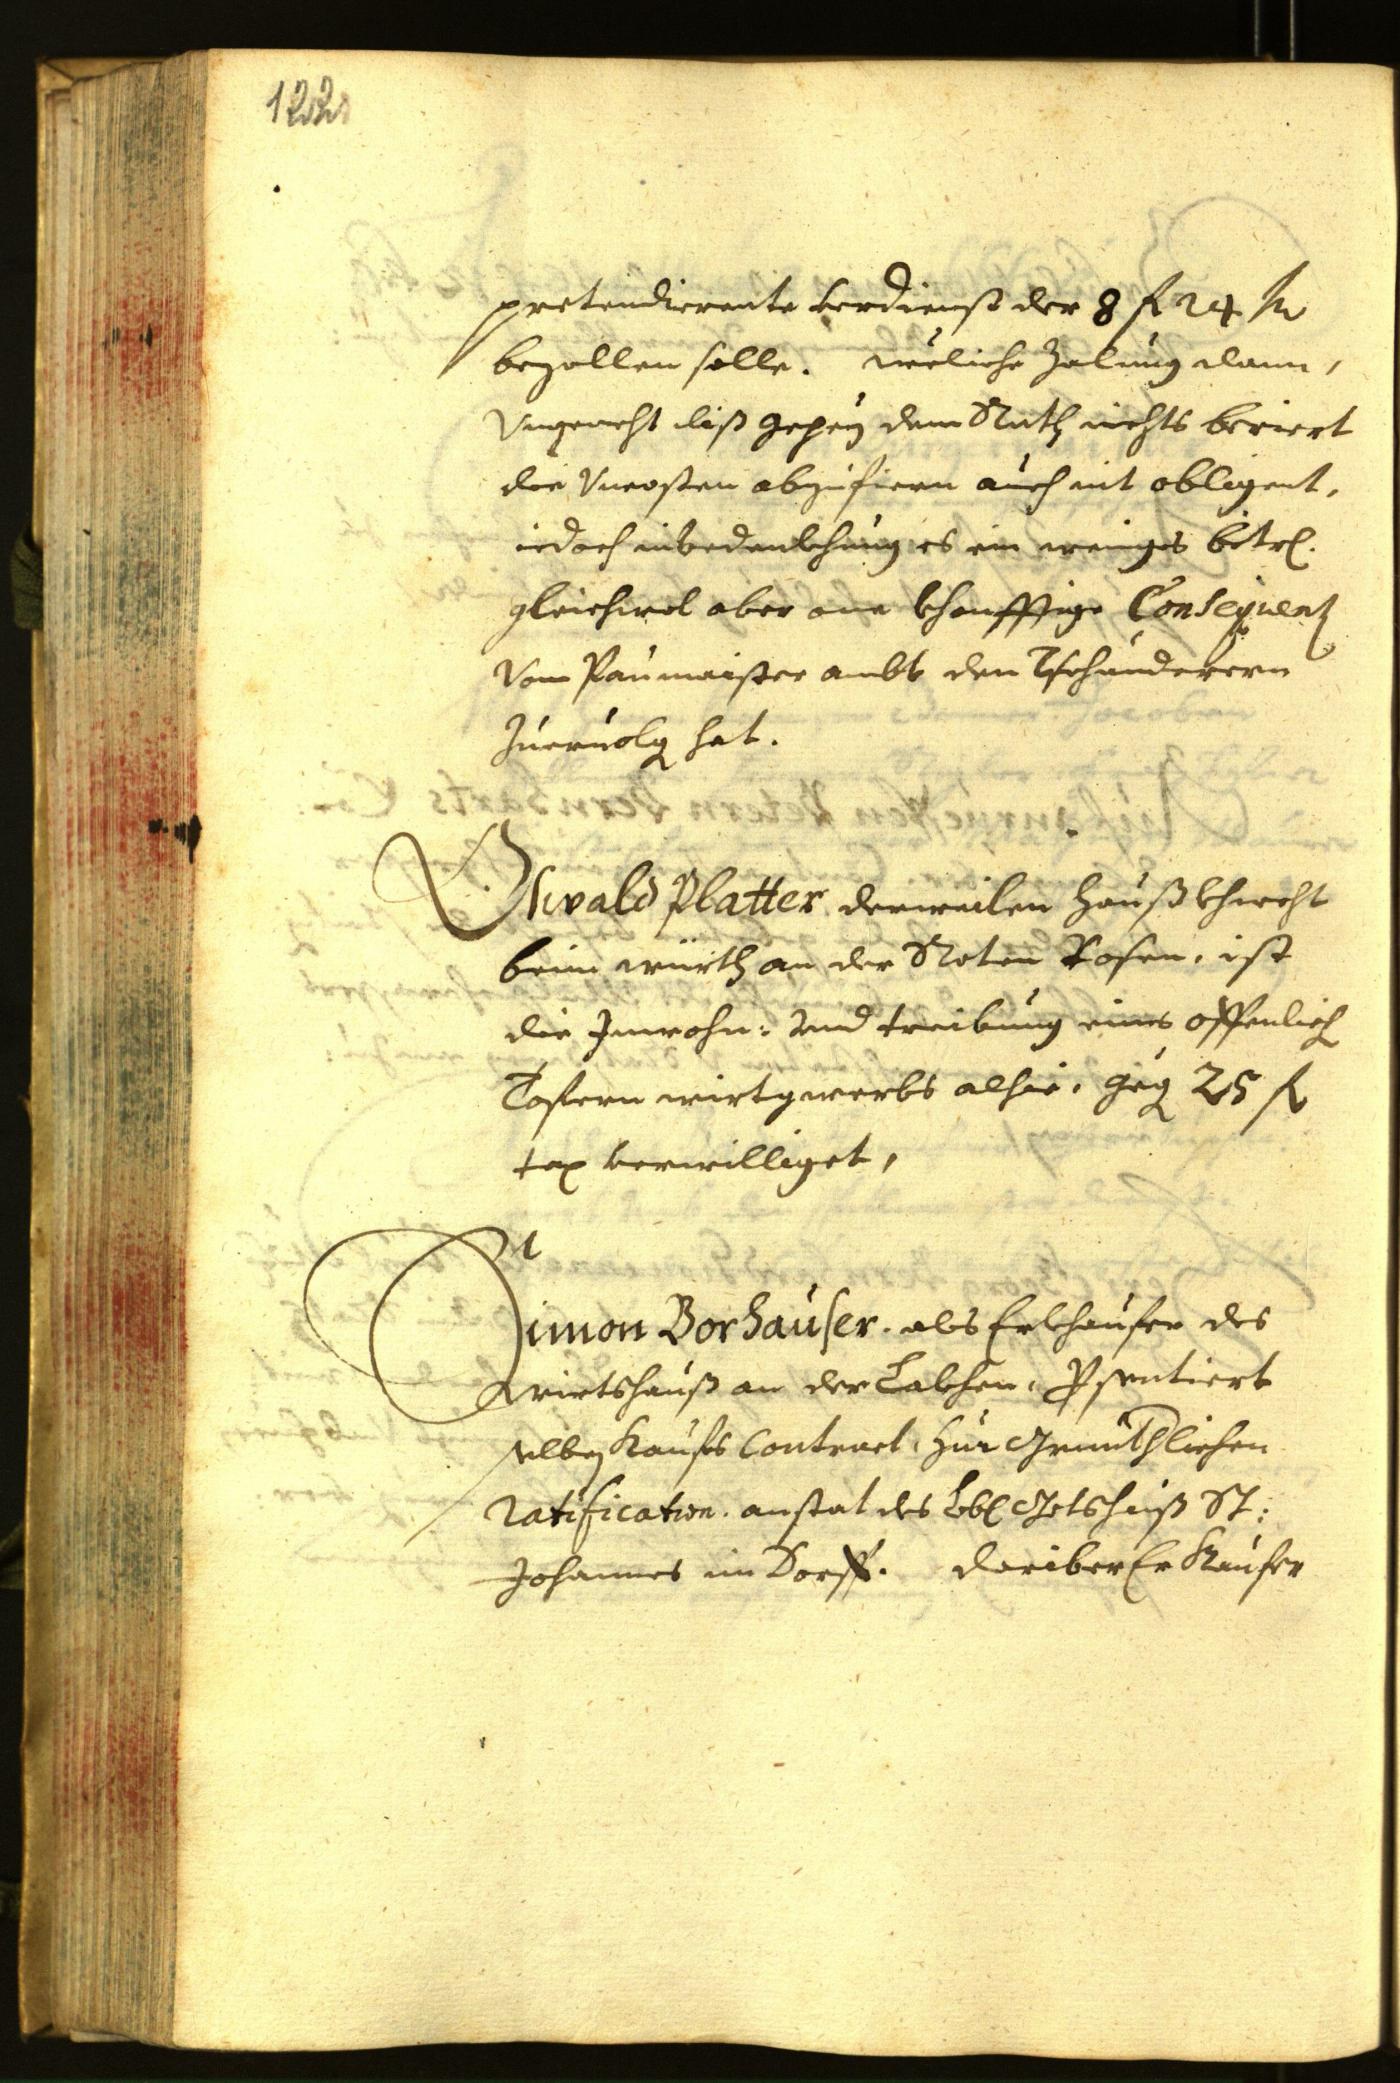 122
pretendierente verdienst der 8 f 24 kr
bezallen solle. weliche Zalung dann,
Vngeacht diß gepey dem Rath nichts beriert
die Vncosten abzufiern auch nit obligent,
iedoch in bedenkhung es ein weniges bitrl.
gleichwol aber one khonfftige Consequenz
Vom Paumaister ambt den Tschauderern
Zuervolg hat.
Oswald Platter derweilen Haußkhnecht
beim würth an der Roten Rosen, ist
die Inwohn: Vnd treibung eines offentlich
Tafern wirtgwerbs alhie, geg 25 f
tax verwilliget,
Simon Vorhauser. als Erkhaufer des
Wirtshauß an der Talkhen, Presentiert
selben Kaufs Contract, Zur Gemüthlichen
Ratification. anstat des Lobl Gotshauß St:
Johannes im Dorff. dariber Er Kaufer